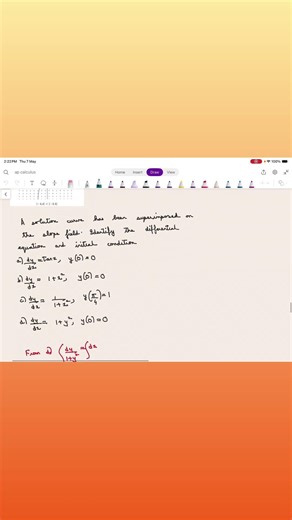 2:23 PM Thu 7 May
100%
ap calculus
Home Insert Draw View
A solution curve has been superimposed on
the slope field. Identify the differential
equation and initial condition
a) dy/dx = tan x, y(0) = 0
b) dy/dx = 1 + x², y(0) = 0
c) dy/dx = 1/(1+x²), y(π/4) = 1
d) dy/dx = 1 + y², y(0) = 0
From d) ∫ dy/(1+y²) = ∫ dx